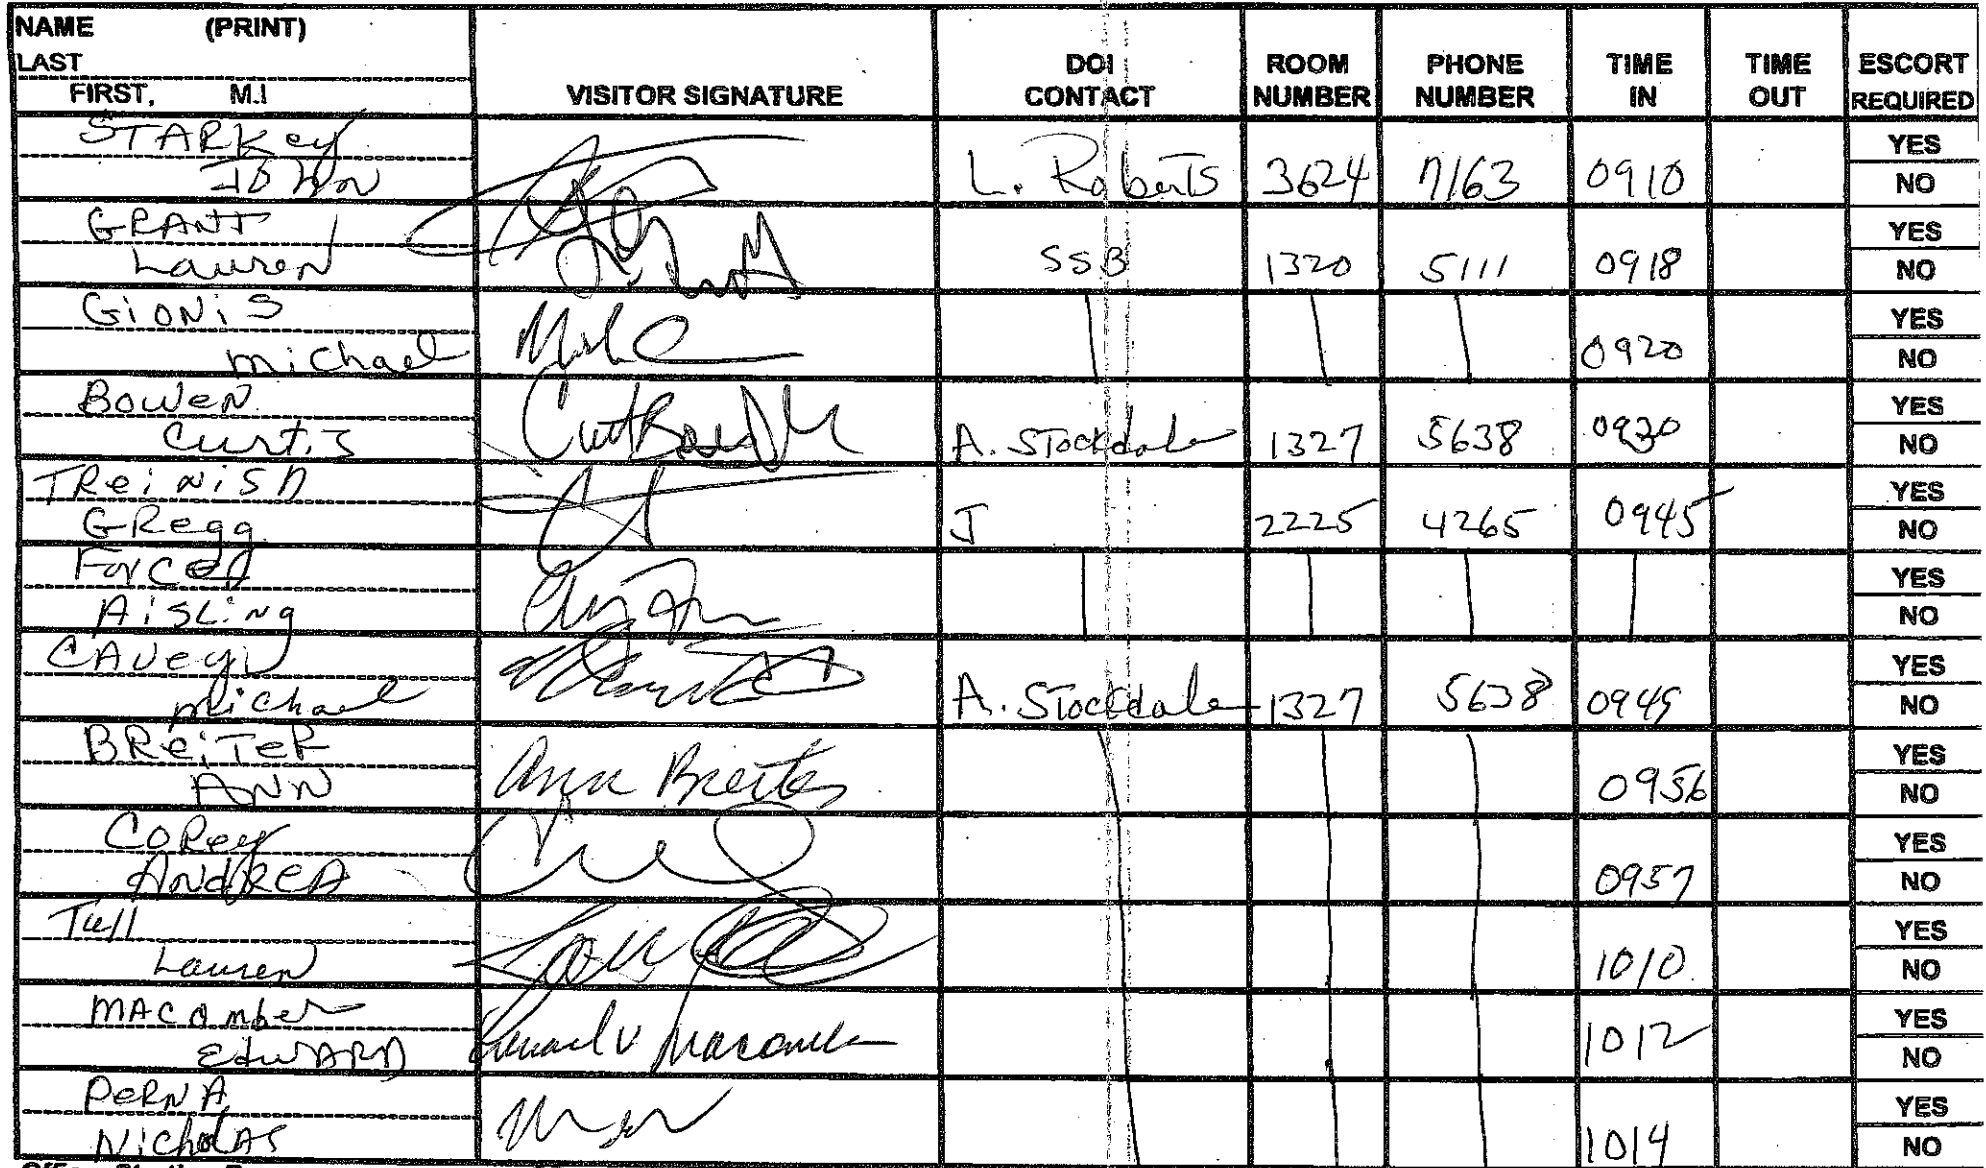 NAME (PRINT)
LAST
FIRST, M.I
VISITOR SIGNATURE
DOI CONTACT
ROOM NUMBER
PHONE NUMBER
TIME IN
TIME OUT
ESCORT REQUIRED
STARKey
JOHN
L. Roberts 3624 7163 0910
YES
NO
GRANT
Lauren
SSB 1320 5111 0918
YES
NO
GiONiS
michael
0920
YES
NO
BOWeN
Curtis
A. Stockdale 1327 5638 0930
YES
NO
TReiNiSh
GRegg
J 2225 4265 0945
YES
NO
AiSLiNg
YES
NO
CAVey
michael
A. Stockdale 1327 5638 0949
YES
NO
BReiTeR
ANN
Ann Breiter
0956
YES
NO
CORey
ANdReA
0957
YES
NO
Tull
Lauren
1010
YES
NO
MACOmber
EdwARD
1012
YES
NO
PeRNA
NichOLAS
1014
YES
NO